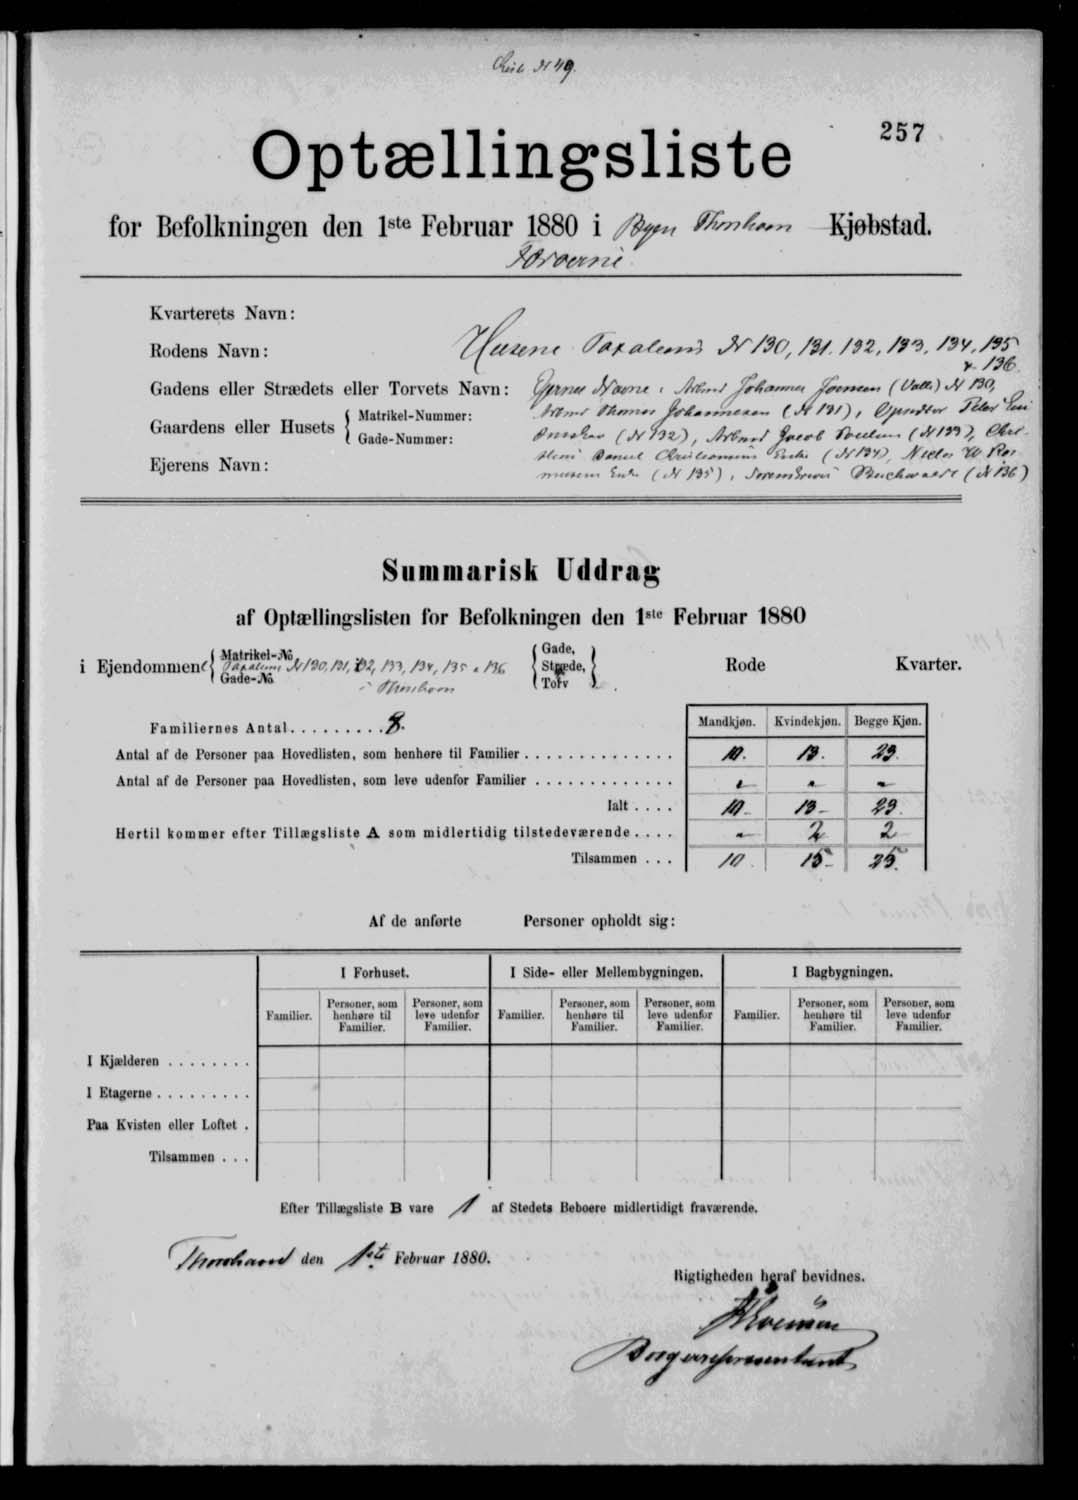 N 49.
257
Optællingsliste
for Befolkningen den 1ste Februar 1880 i Byen Thorshavn Kjøbstad.
Færøerne
Kvarterets Navn:
Rodens Navn: Husene Taxalens N 130, 131. 132, 133, 134, 135
& 136
Gadens eller Strædets eller Torvets Navn: Ejernes Navne: Johannes Joensen N 130,
Gaardens eller Husets { Matrikel-Nummer: Thomas Johannesen (N 131), Peter
Gade-Nummer: (N 132), Jacob Poulsen (N 133),
Daniel Christiansens Enke (N 134), Niels W Ras-
Ejerens Navn: mussens Enke (N 135), (N 136)
Summarisk Uddrag
af Optællingslisten for Befolkningen den 1ste Februar 1880
i Ejendommene { Matrikel-No Taxalens N 130, 131, 132, 133, 134, 135 & 136 Gade-No i Thorshavn { Gade, Stræde, Torv } Rode Kvarter.
Mandkjøn. Kvindekjøn. Begge Kjøn.
Familiernes Antal......... 8.
Antal af de Personer paa Hovedlisten, som henhøre til Familier .............. 10. 13. 23.
Antal af de Personer paa Hovedlisten, som leve udenfor Familier ............. " " "
Ialt .... 10 - 13 - 23.
Hertil kommer efter Tillægsliste A som midlertidig tilstedeværende.... " 2 2
Tilsammen ... 10. 15 - 25.
Af de anførte Personer opholdt sig:
I Forhuset. I Side- eller Mellembygningen. I Bagbygningen.
Familier. Personer, som henhøre til Familier. Personer, som leve udenfor Familier. Familier. Personer, som henhøre til Familier. Personer, som leve udenfor Familier. Familier. Personer, som henhøre til Familier. Personer, som leve udenfor Familier.
I Kjælderen ........
I Etagerne.........
Paa Kvisten eller Loftet .
Tilsammen ...
Efter Tillægsliste B vare 1 af Stedets Beboere midlertidigt fraværende.
Thorshavn den 1ste Februar 1880.
Rigtigheden heraf bevidnes.
Borgerrepræsentant